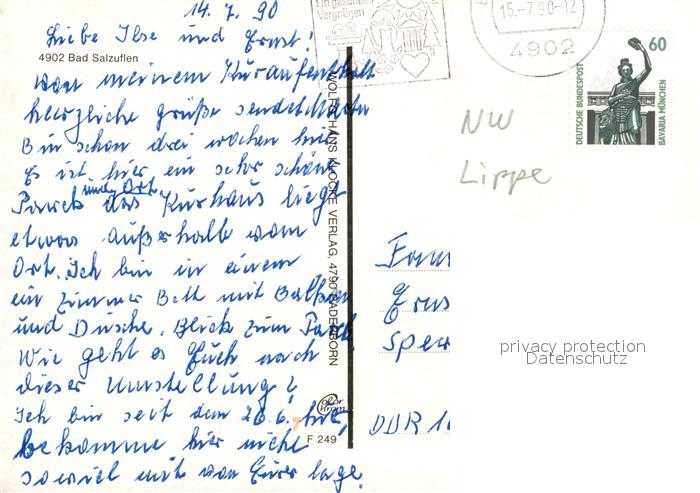 14. 7. 90
Liebe Ilse und Ernst!
4902 Bad Salzuflen
von meinem Kuraufenthalt
herzliche Grüße sendet Martin
Bin schon drei wochen hier
Es ist hier ein sehr schöner
und Ort.
Parck das Kurhaus liegt
etwas außerhalb vom
Ort. Ich bin in einem
ein Zimmer Bett mit Balkon
und Dusche. Blick zum Park
Wie geht es Euch nach
dieser Umstellung?
Ich bin seit dem 26.6. hir,
bekomme hier nicht
soviel mit von Eurer lage.
WOLFGANG HANS KLOCKE VERLAG, 4790 PADERBORN
color
chrom
F 249
Ein gesundes
Vergnügen
15.-7.90-12
4902
DEUTSCHE BUNDESPOST
60
BAVARIA MÜNCHEN
NW
Lippe
Fam
Erns
Sper
DDR 1
privacy protection
Datenschutz